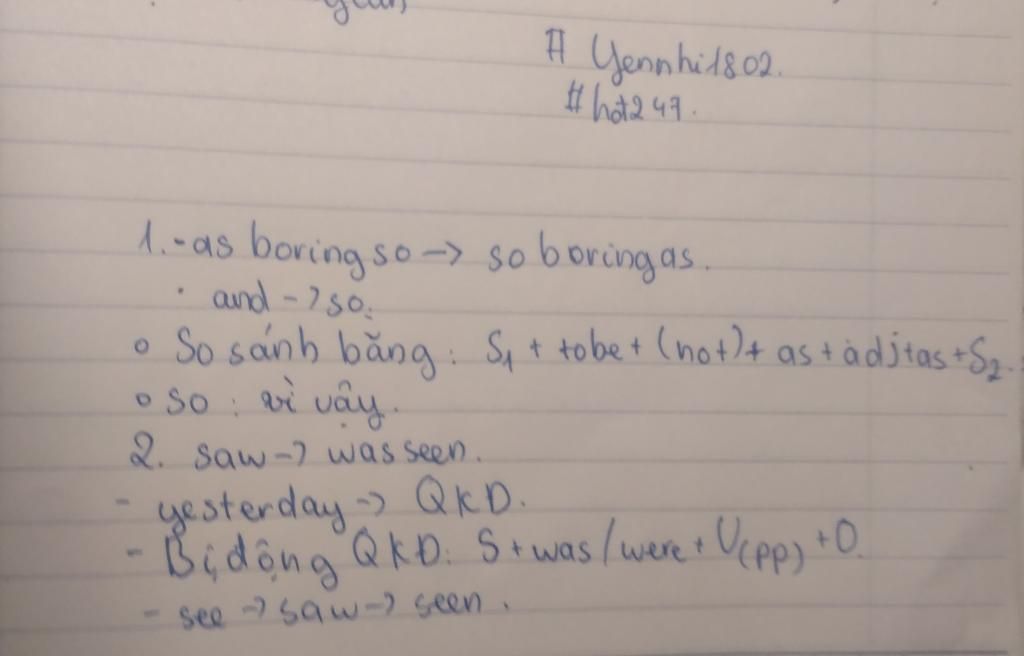 # Yennhi1802.
#hot247.
1. - as boring so -> so boring as.
· and -> so.
o So sánh bằng: S1 + tobe + (not) + as + adj + as + S2.
o so : vì vậy.
2. saw -> was seen.
- yesterday -> QKD.
- Bị động QKD: S + was/were + V(PP) + O.
- see -> saw -> seen.